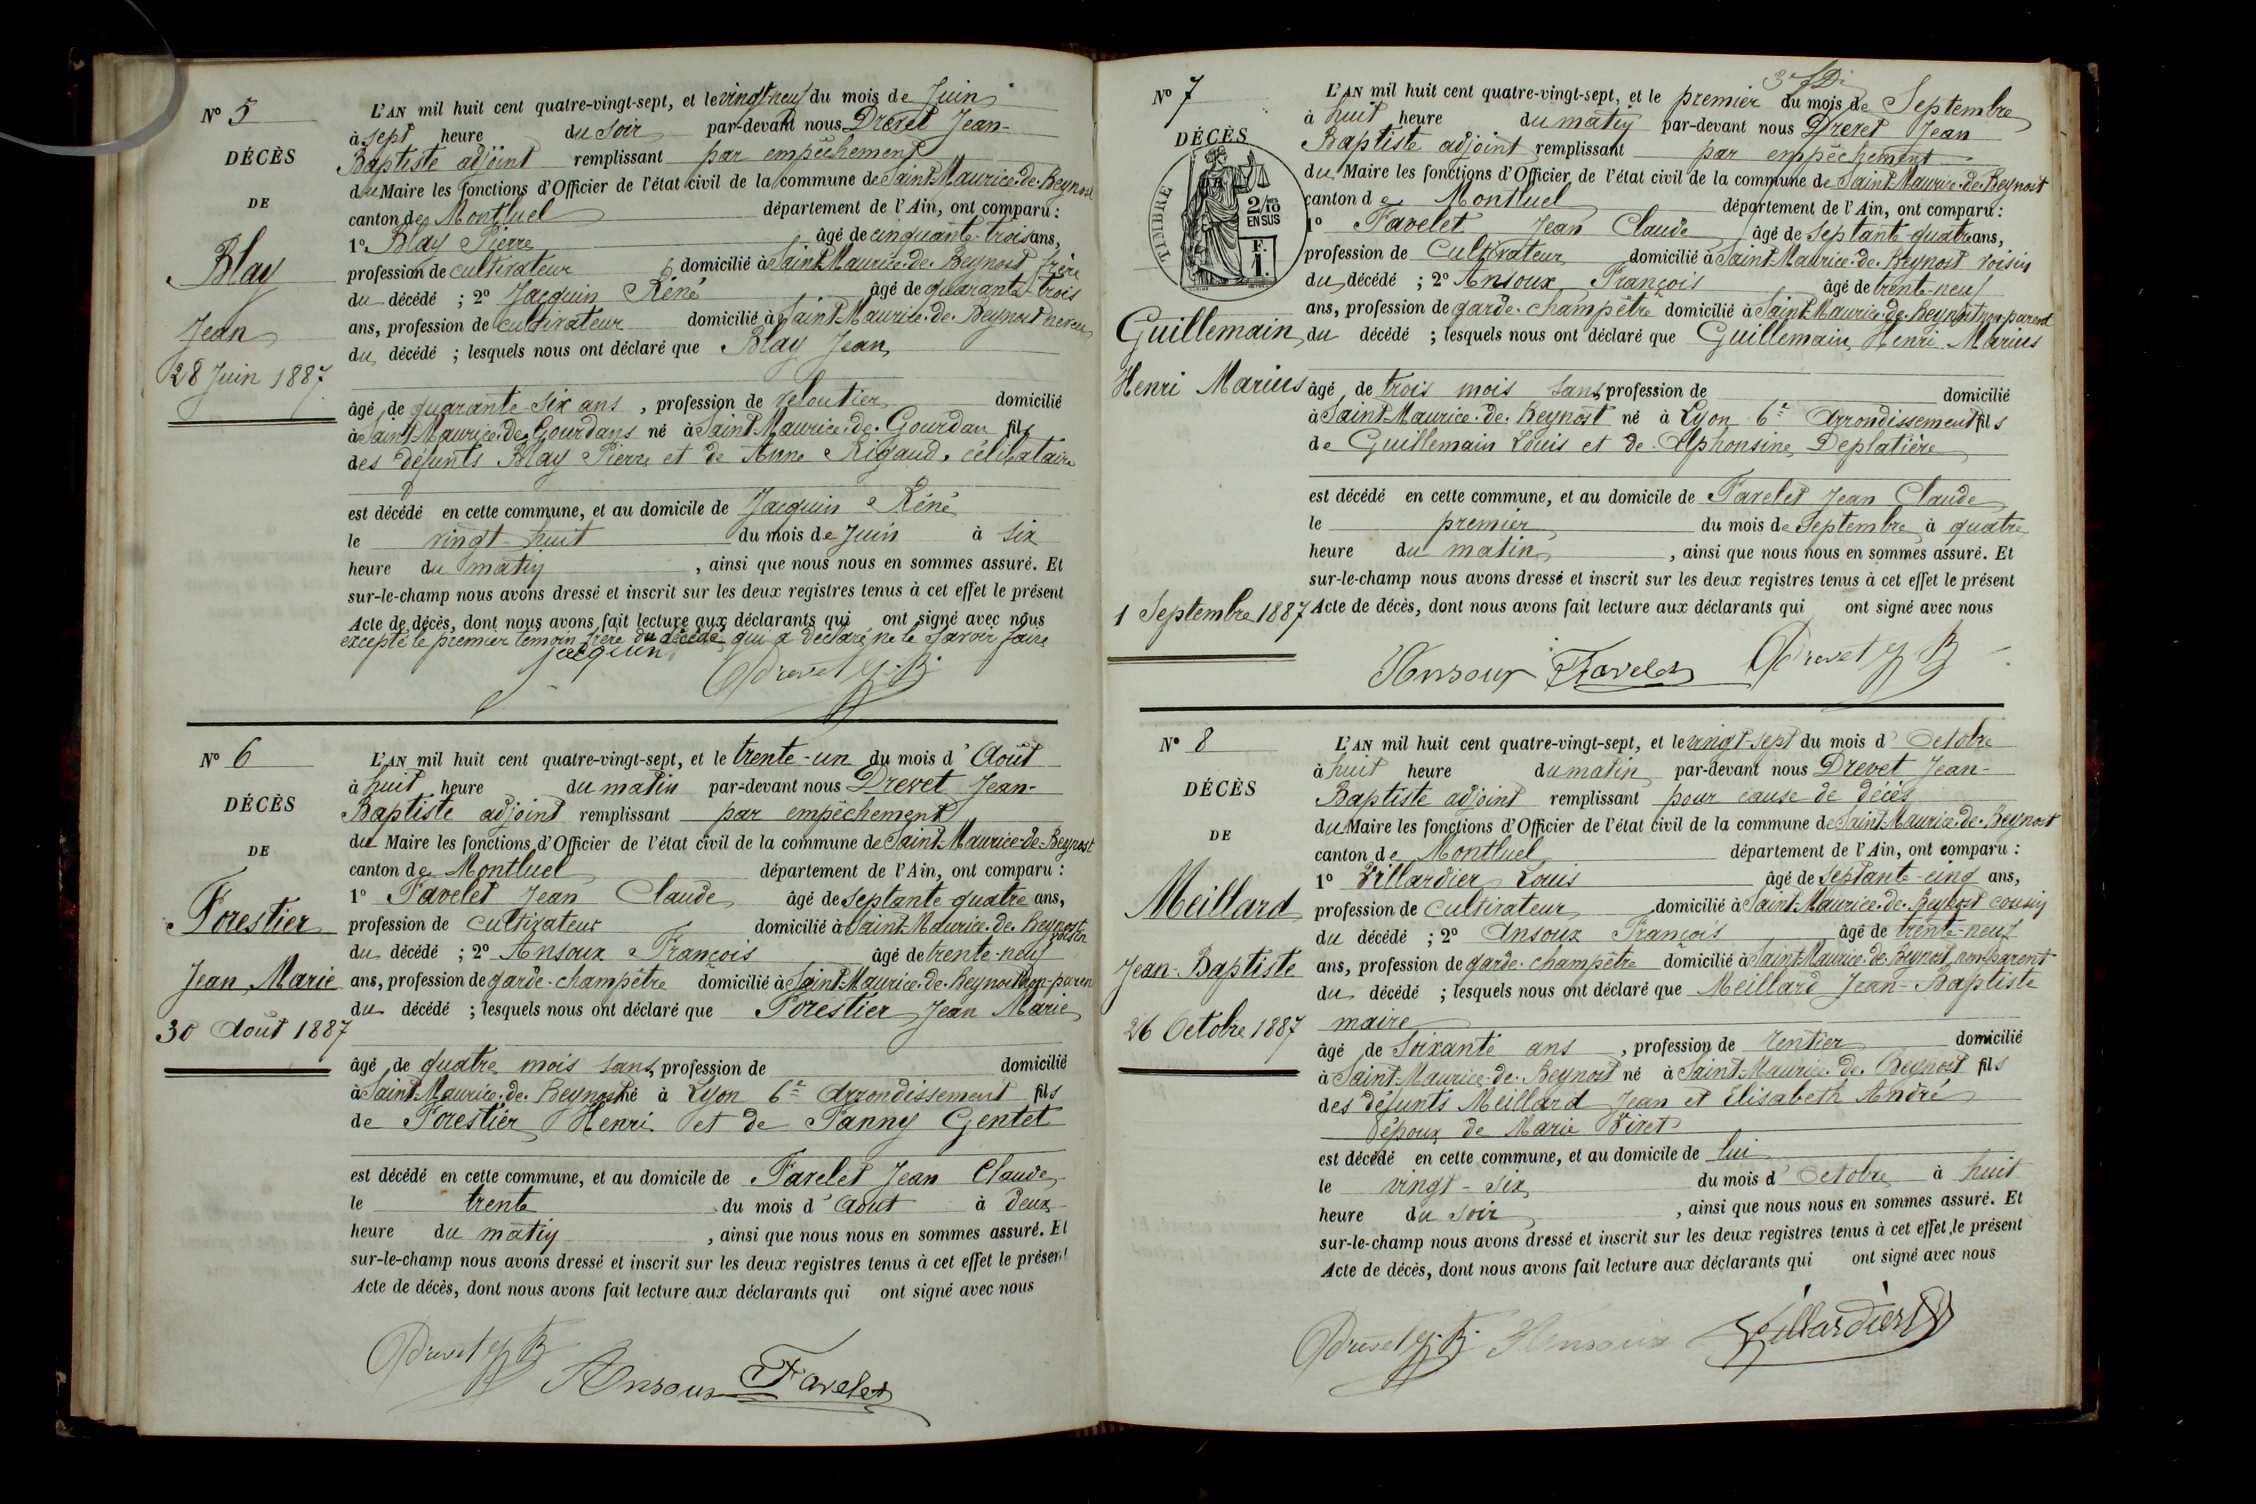 N° 5
DÉCÈS
DE
Blay
Jean
28 Juin 1887
L'AN mil huit cent quatre-vingt-sept, et le vingt neuf du mois de Juin
à sept heure du soir par-devant nous Drevet Jean-
Baptiste adjoint remplissant par empêchement
du Maire les fonctions d'Officier de l'état civil de la commune de Saint-Maurice-de-Beynost
canton de Montluel département de l'Ain, ont comparu :
1° Blay Pierre âgé de cinquante-trois ans,
profession de cultivateur domicilié à Saint-Maurice-de-Beynost frère
du décédé ; 2° Jacquin Réné âgé de quarante-trois
ans, profession de cultivateur domicilié à Saint-Maurice-de-Beynost neveu
du décédé ; lesquels nous ont déclaré que Blay Jean
âgé de quarante-six ans, profession de veloutier domicilié
à Saint-Maurice-de-Gourdans né à Saint-Maurice-de-Gourdan fils
des défunts Blay Pierre et de Anne Rigaud, célibataire
est décédé en cette commune, et au domicile de Jacquin Réné
le vingt-huit du mois de Juin à six
heure du matin, ainsi que nous nous en sommes assuré. Et
sur-le-champ nous avons dressé et inscrit sur les deux registres tenus à cet effet le présent
Acte de décès, dont nous avons fait lecture aux déclarants qui ont signé avec nous
excepté le premier témoin frère du décédé qui a déclaré ne le savoir faire
Jacquin Drevet J. B.
N° 6
DÉCÈS
DE
Forestier
Jean Marie
30 Août 1887
L'AN mil huit cent quatre-vingt-sept, et le trente-un du mois d'Août
à huit heure du matin par-devant nous Drevet Jean-
Baptiste adjoint remplissant par empêchement
du Maire les fonctions d'Officier de l'état civil de la commune de Saint-Maurice-de-Beynost
canton de Montluel département de l'Ain, ont comparu :
1° Favelet Jean Claude âgé de septante quatre ans,
profession de cultivateur domicilié à Saint-Maurice-de-Beynost voisin
du décédé ; 2° Ansoux François âgé de trente-neuf
ans, profession de garde-champêtre domicilié à Saint-Maurice-de-Beynost non-parent
du décédé ; lesquels nous ont déclaré que Forestier Jean Marie
âgé de quatre mois sans profession de domicilié
à Saint-Maurice-de-Beynost né à Lyon 6e Arrondissement fils
de Forestier Henri et de Fanny Gentet
est décédé en cette commune, et au domicile de Favelet Jean Claude
le trente du mois d'Août à deux
heure du matin, ainsi que nous nous en sommes assuré. Et
sur-le-champ nous avons dressé et inscrit sur les deux registres tenus à cet effet le présent
Acte de décès, dont nous avons fait lecture aux déclarants qui ont signé avec nous
Drevet J. B. Ansoux Favelet
N° 7
DÉCÈS
TIMBRE
2/10 EN SUS
F. 1.
Guillemain
Henri Marius
1 Septembre 1887
L'AN mil huit cent quatre-vingt-sept, et le premier du mois de Septembre
à huit heure du matin par-devant nous Drevet Jean
Baptiste adjoint remplissant par empêchement
du Maire les fonctions d'Officier de l'état civil de la commune de Saint-Maurice-de-Beynost
canton de Montluel département de l'Ain, ont comparu :
1° Favelet Jean Claude âgé de septante-quatre ans,
profession de cultivateur domicilié à Saint-Maurice-de-Beynost voisin
du décédé ; 2° Ansoux François âgé de trente-neuf
ans, profession de garde-champêtre domicilié à Saint-Maurice-de-Beynost non-parent
du décédé ; lesquels nous ont déclaré que Guillemain Henri Marius
âgé de trois mois sans profession de domicilié
à Saint-Maurice-de-Beynost né à Lyon 6e Arrondissement fils
de Guillemain Louis et de Alphonsine Deplatière
est décédé en cette commune, et au domicile de Favelet Jean Claude
le premier du mois de Septembre à quatre
heure du matin, ainsi que nous nous en sommes assuré. Et
sur-le-champ nous avons dressé et inscrit sur les deux registres tenus à cet effet le présent
Acte de décès, dont nous avons fait lecture aux déclarants qui ont signé avec nous
Ansoux Favelet Drevet J. B.
N° 8
DÉCÈS
DE
Meillard
Jean-Baptiste
26 Octobre 1887
L'AN mil huit cent quatre-vingt-sept, et le vingt-sept du mois d'Octobre
à huit heure du matin par-devant nous Drevet Jean-
Baptiste adjoint remplissant pour cause de décès
du Maire les fonctions d'Officier de l'état civil de la commune de Saint-Maurice-de-Beynost
canton de Montluel département de l'Ain, ont comparu :
1° Villardier Louis âgé de septante-cinq ans,
profession de cultivateur domicilié à Saint-Maurice-de-Beynost cousin
du décédé ; 2° Ansoux François âgé de trente-neuf
ans, profession de garde-champêtre domicilié à Saint-Maurice-de-Beynost non-parent
du décédé ; lesquels nous ont déclaré que Meillard Jean-Baptiste
maire
âgé de soixante ans, profession de rentier domicilié
à Saint-Maurice-de-Beynost né à Saint-Maurice-de-Beynost fils
des défunts Meillard Jean et Elisabeth André
époux de Marie Viret
est décédé en cette commune, et au domicile de lui
le vingt-six du mois d'Octobre à huit
heure du soir, ainsi que nous nous en sommes assuré. Et
sur-le-champ nous avons dressé et inscrit sur les deux registres tenus à cet effet, le présent
Acte de décès, dont nous avons fait lecture aux déclarants qui ont signé avec nous
Drevet J. B. Ansoux Villardier